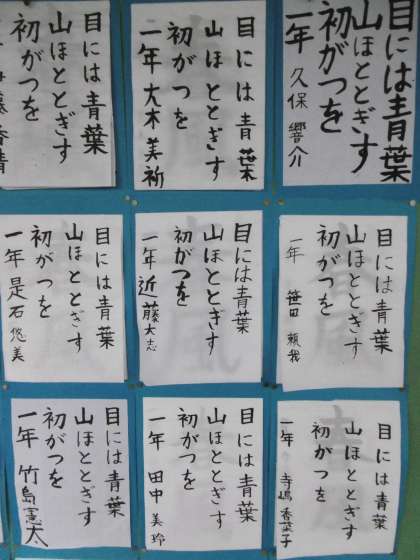 目には青葉
山ほととぎす
初がつを
一年 久保響介
目には青葉
山ほととぎす
初がつを
一年 大木美祈
目には青葉
山ほととぎす
初がつを
目には青葉
山ほととぎす
初がつを
一年 笹田 頼我
目には青葉
山ほととぎす
初がつを
一年 近藤大志
目には青葉
山ほととぎす
初がつを
一年 是石悠美
目には青葉
山ほととぎす
初がつを
一年 寺嶋香菜子
目には青葉
山ほととぎす
初がつを
一年 田中美玲
目には青葉
山ほととぎす
初がつを
一年 竹島憲太